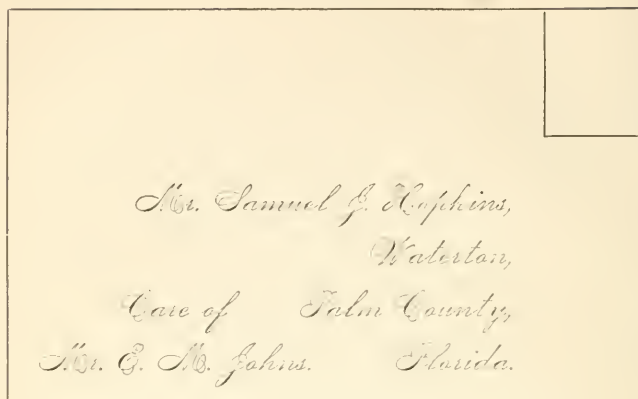 Mr. Samuel J. Hopkins,
Waterton,
Care of Palm County,
Mr. E. M. Johns. Florida.